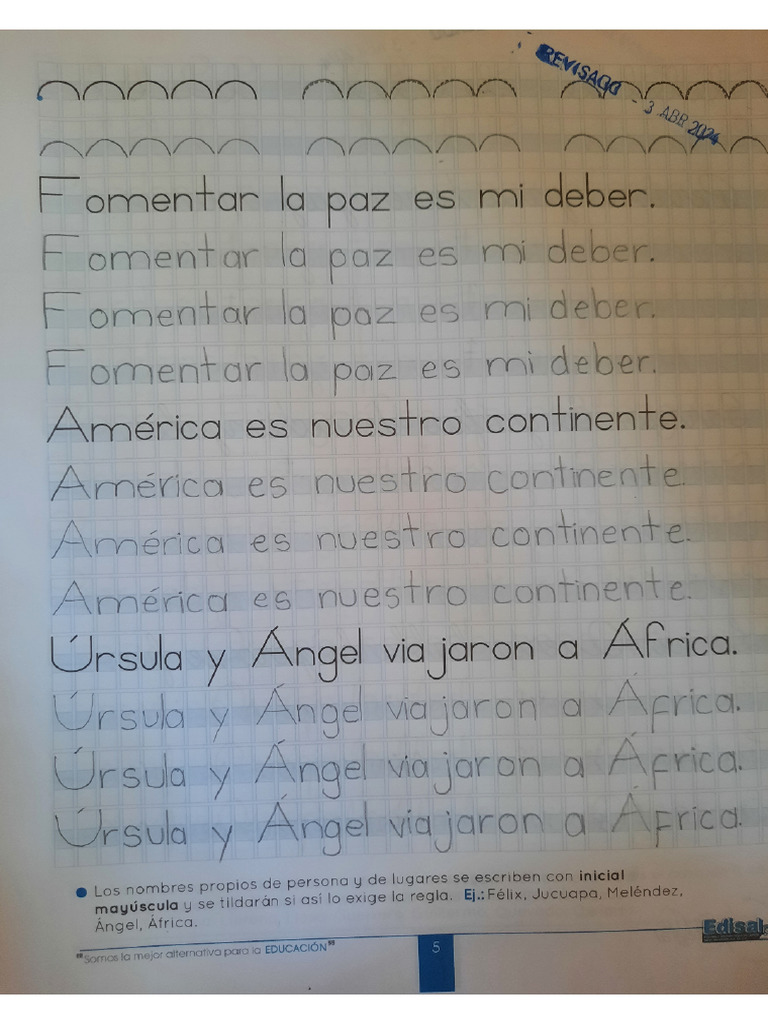 REVISADO - 3 ABR 2024
Fomentar la paz es mi deber.
Fomentar la paz es mi deber.
Fomentar la paz es mi deber.
Fomentar la paz es mi deber.
América es nuestro continente.
América es nuestro continente.
América es nuestro continente.
América es nuestro continente.
Úrsula y Ángel viajaron a África.
Úrsula y Ángel viajaron a África.
Úrsula y Ángel viajaron a África.
Úrsula y Ángel viajaron a África.
Los nombres propios de persona y de lugares se escriben con inicial
mayúscula y se tildarán si así lo exige la regla. Ej.: Félix, Jucuapa, Meléndez,
Ángel, África.
"Somos la mejor alternativa para la EDUCACIÓN"
5
Edisal